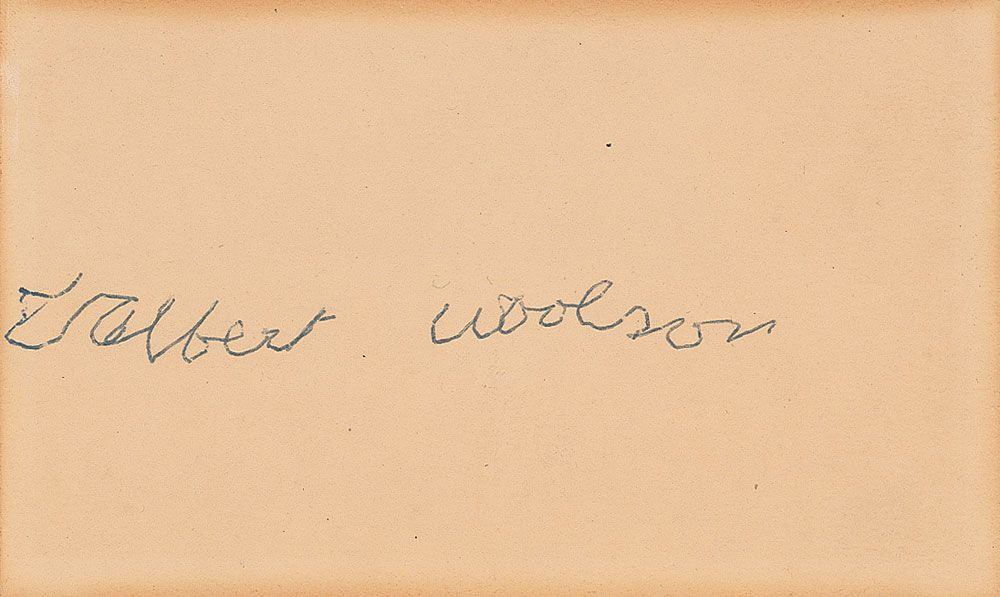 Albert Woolson